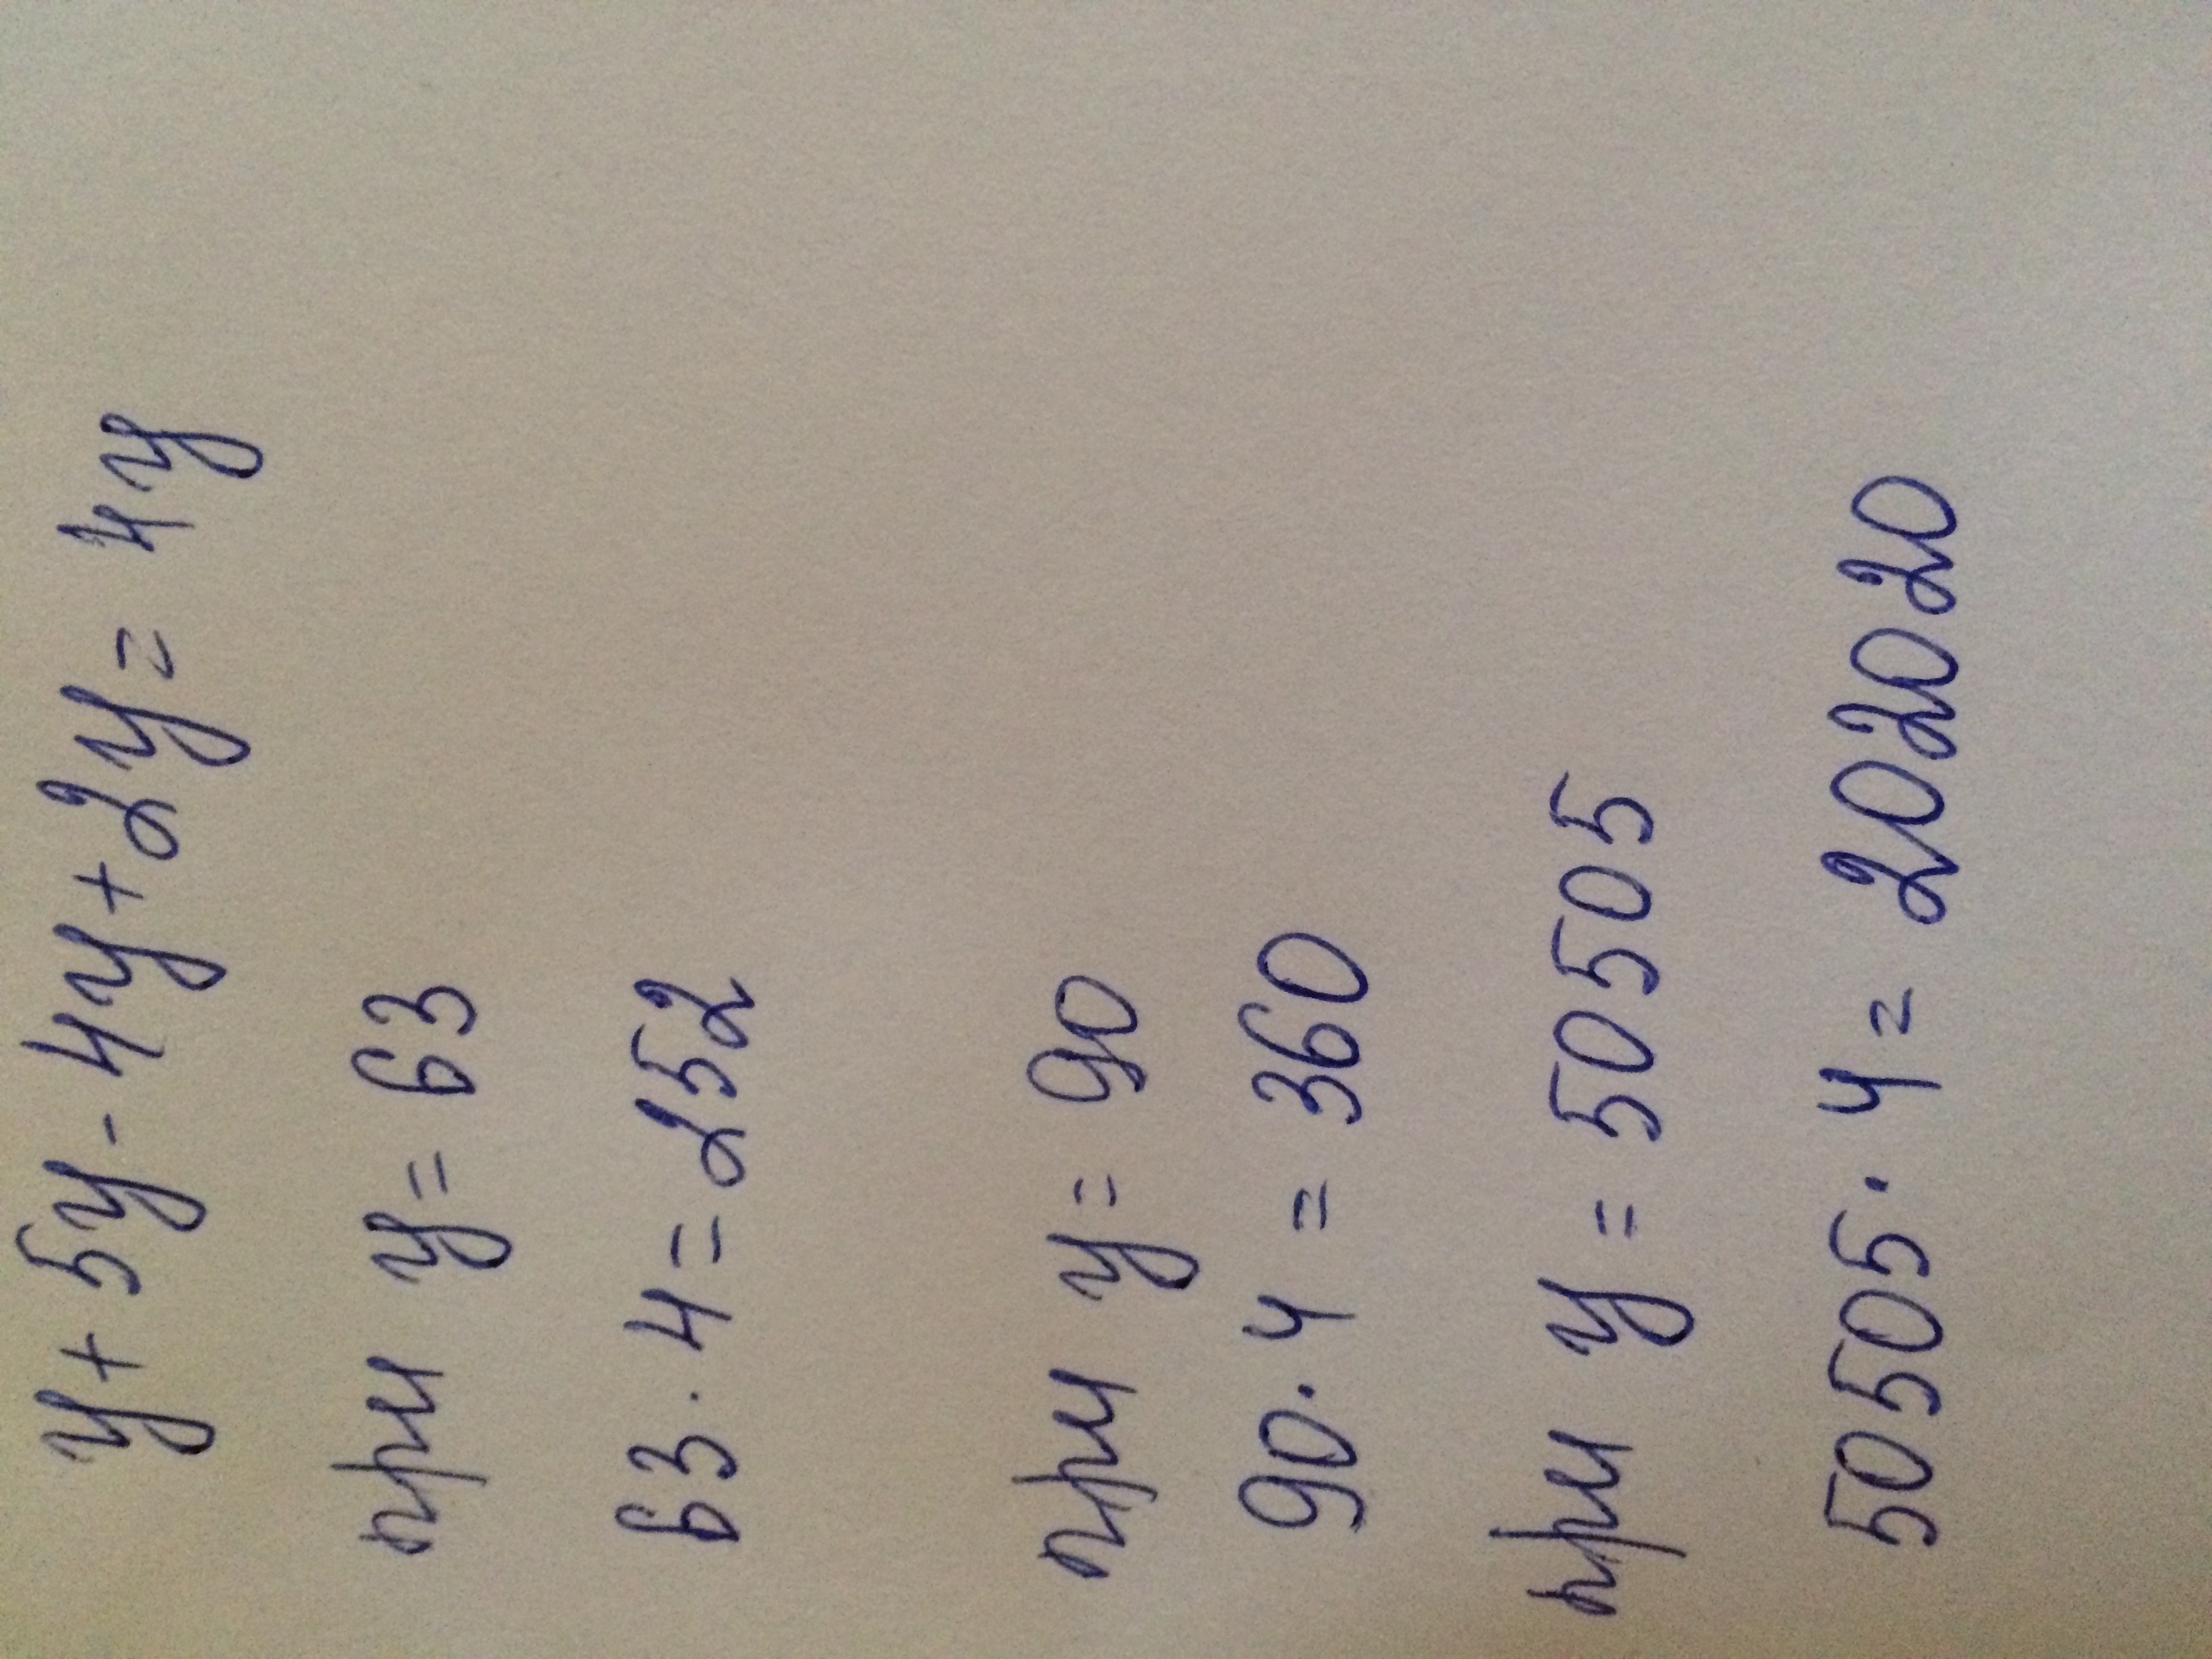 y + 5y - 4y + 2y = 4y
при y = 63
63 · 4 = 252
при y = 90
90 · 4 = 360
при y = 50505
50505 · 4 = 202020